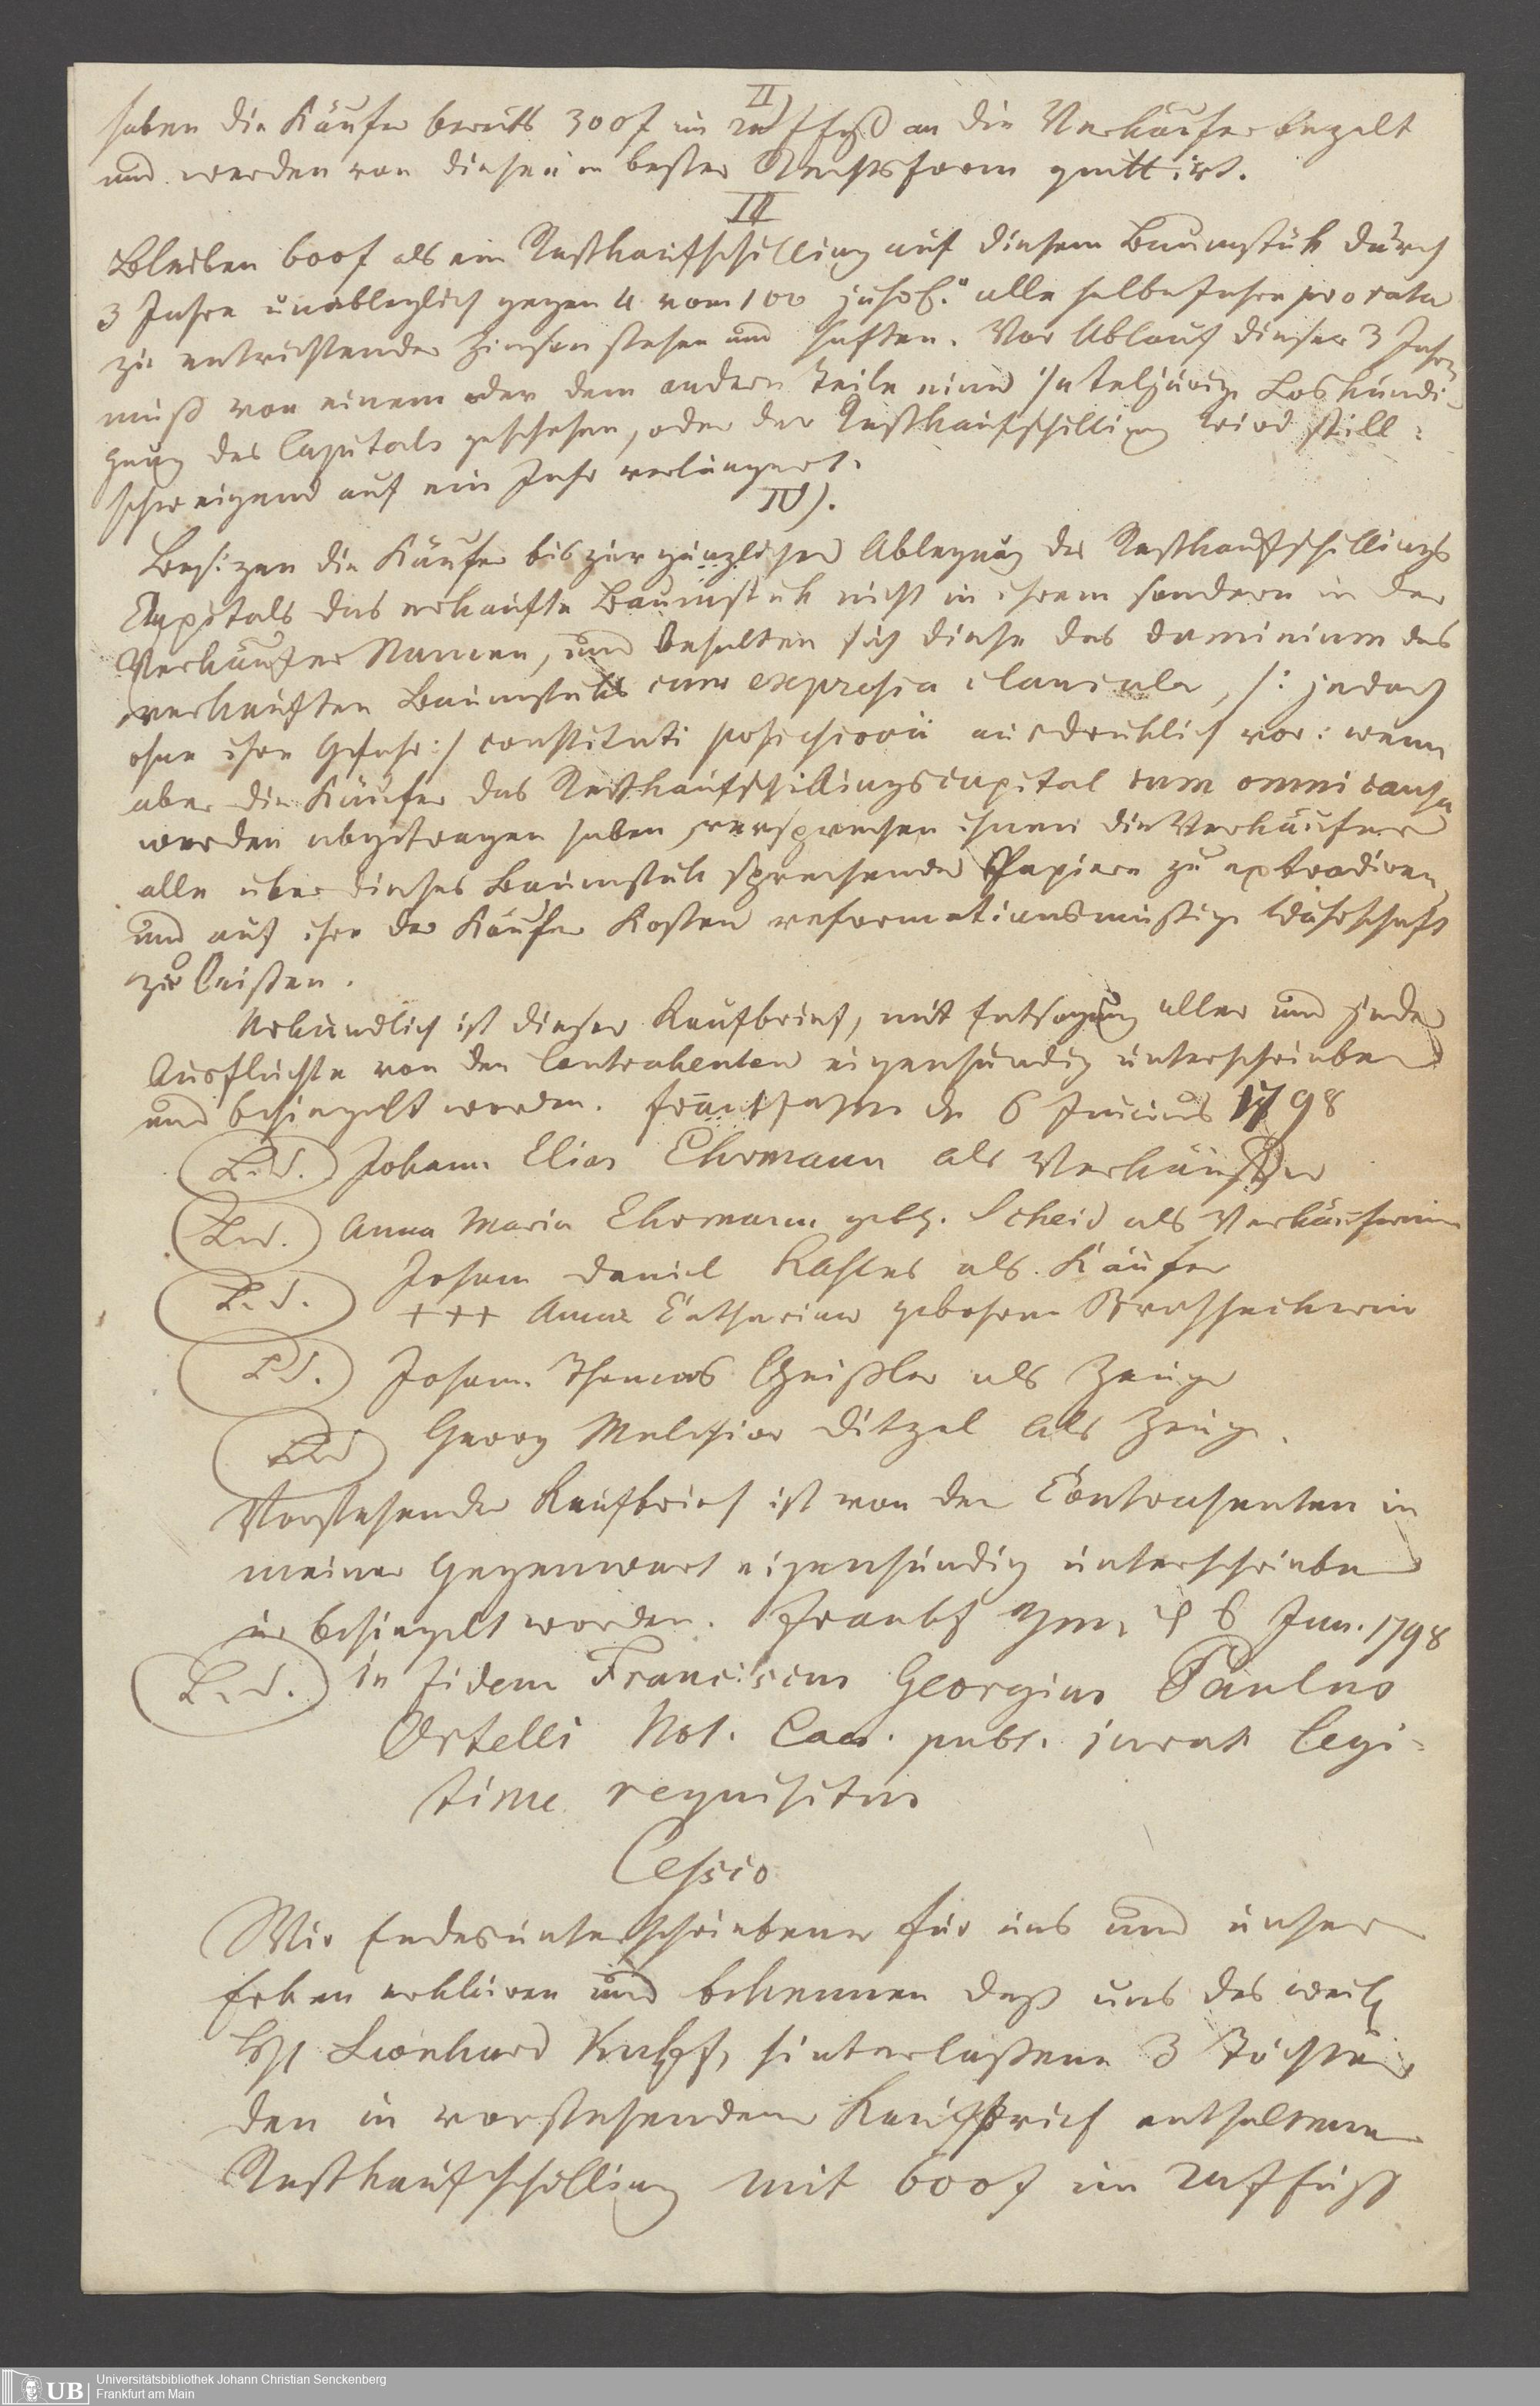 II)
haben die Käufer bereits 300 f im 24 f fuß an die Verkäufer bezalt
und werden von diesen in bester Rechtsform quittirt.
III
Bleiben 600 f als ein Restkaufschilling auf diesem Baumstük durch
3 Jahre unableglich gegen 4 vom 100 jährl. alle halbe Jahre pro rata
zu entrichtender Zinsen stehen und haften. Vor Ablauf dieser 3 Jahre
muß von einem oder dem andern Teile eine ¼teljärige Loskündi-
gung des Capitals geschehen, oder der Restkaufschilling wird still-
schweigend auf ein Jahr verlängert.
IV).
Besizen die Käufer bis zur gänzlichen Ablegung des Restkaufschillings
Capitals das erkaufte Baumstük nicht in ihrem sondern in der
Verkäufer Namen, und behalten sich diese das dominium des
verkauften Baumstüks cum expressa clausula, /: jedoch
ohne ihre Gefahr :/ constituti possessorii ausdruklich vor: wenn
aber die Käufer das Restkaufschillingscapital cum omni causa
werden abgetragen haben, versprechen ihnen die Verkäufer
alle uber dieses Baumstük sprechende Papiere zu extradiren,
und auf ihre der Käufer Kosten reformationsmäsige Währschaft
zu leisten.
Urkundlich ist dieser Kaufbrief, mit Entsagung aller und jeder
Ausflüchte von den Contrahenten eigenhändig unterschrieben
und besiegelt worden. 6 Junius 1798
L. S. Johann Elias Ehrmann als Verkäuffer
L. S. Anna Maria Ehrmann gebh. Scheid als Verkäuferinn
L. S. Johann Daniel als Käufer
+++ Anna Catharina gebohrne
L S. Johann Thomas Geißler als Zeuge
L S Georg Melchior Ditzel als Zeuge.
Vorstehender Kaufbrief ist von den Contrahenten in
meiner Gegenwart eigenhändig unterschrieben
u. besiegelt worden. Frankf d 6 Jun. 1798
L. S. in fidem Franciscus Georgius Paulus
Ortelli Not. Caes. publ. jurat legi-
time requisitus
Cessio
Wir Endesunterschriebene für uns und unser
Erben erklären und bekennen daß uns des weil.
H Leonhard hinterlaßene 3 Töchter,
den in vorstehendem Kaufbrief enthaltenen
Restkaufschilling mit 600 f im 24 f fuß
UB
Universitätsbibliothek Johann Christian Senckenberg
Frankfurt am Main